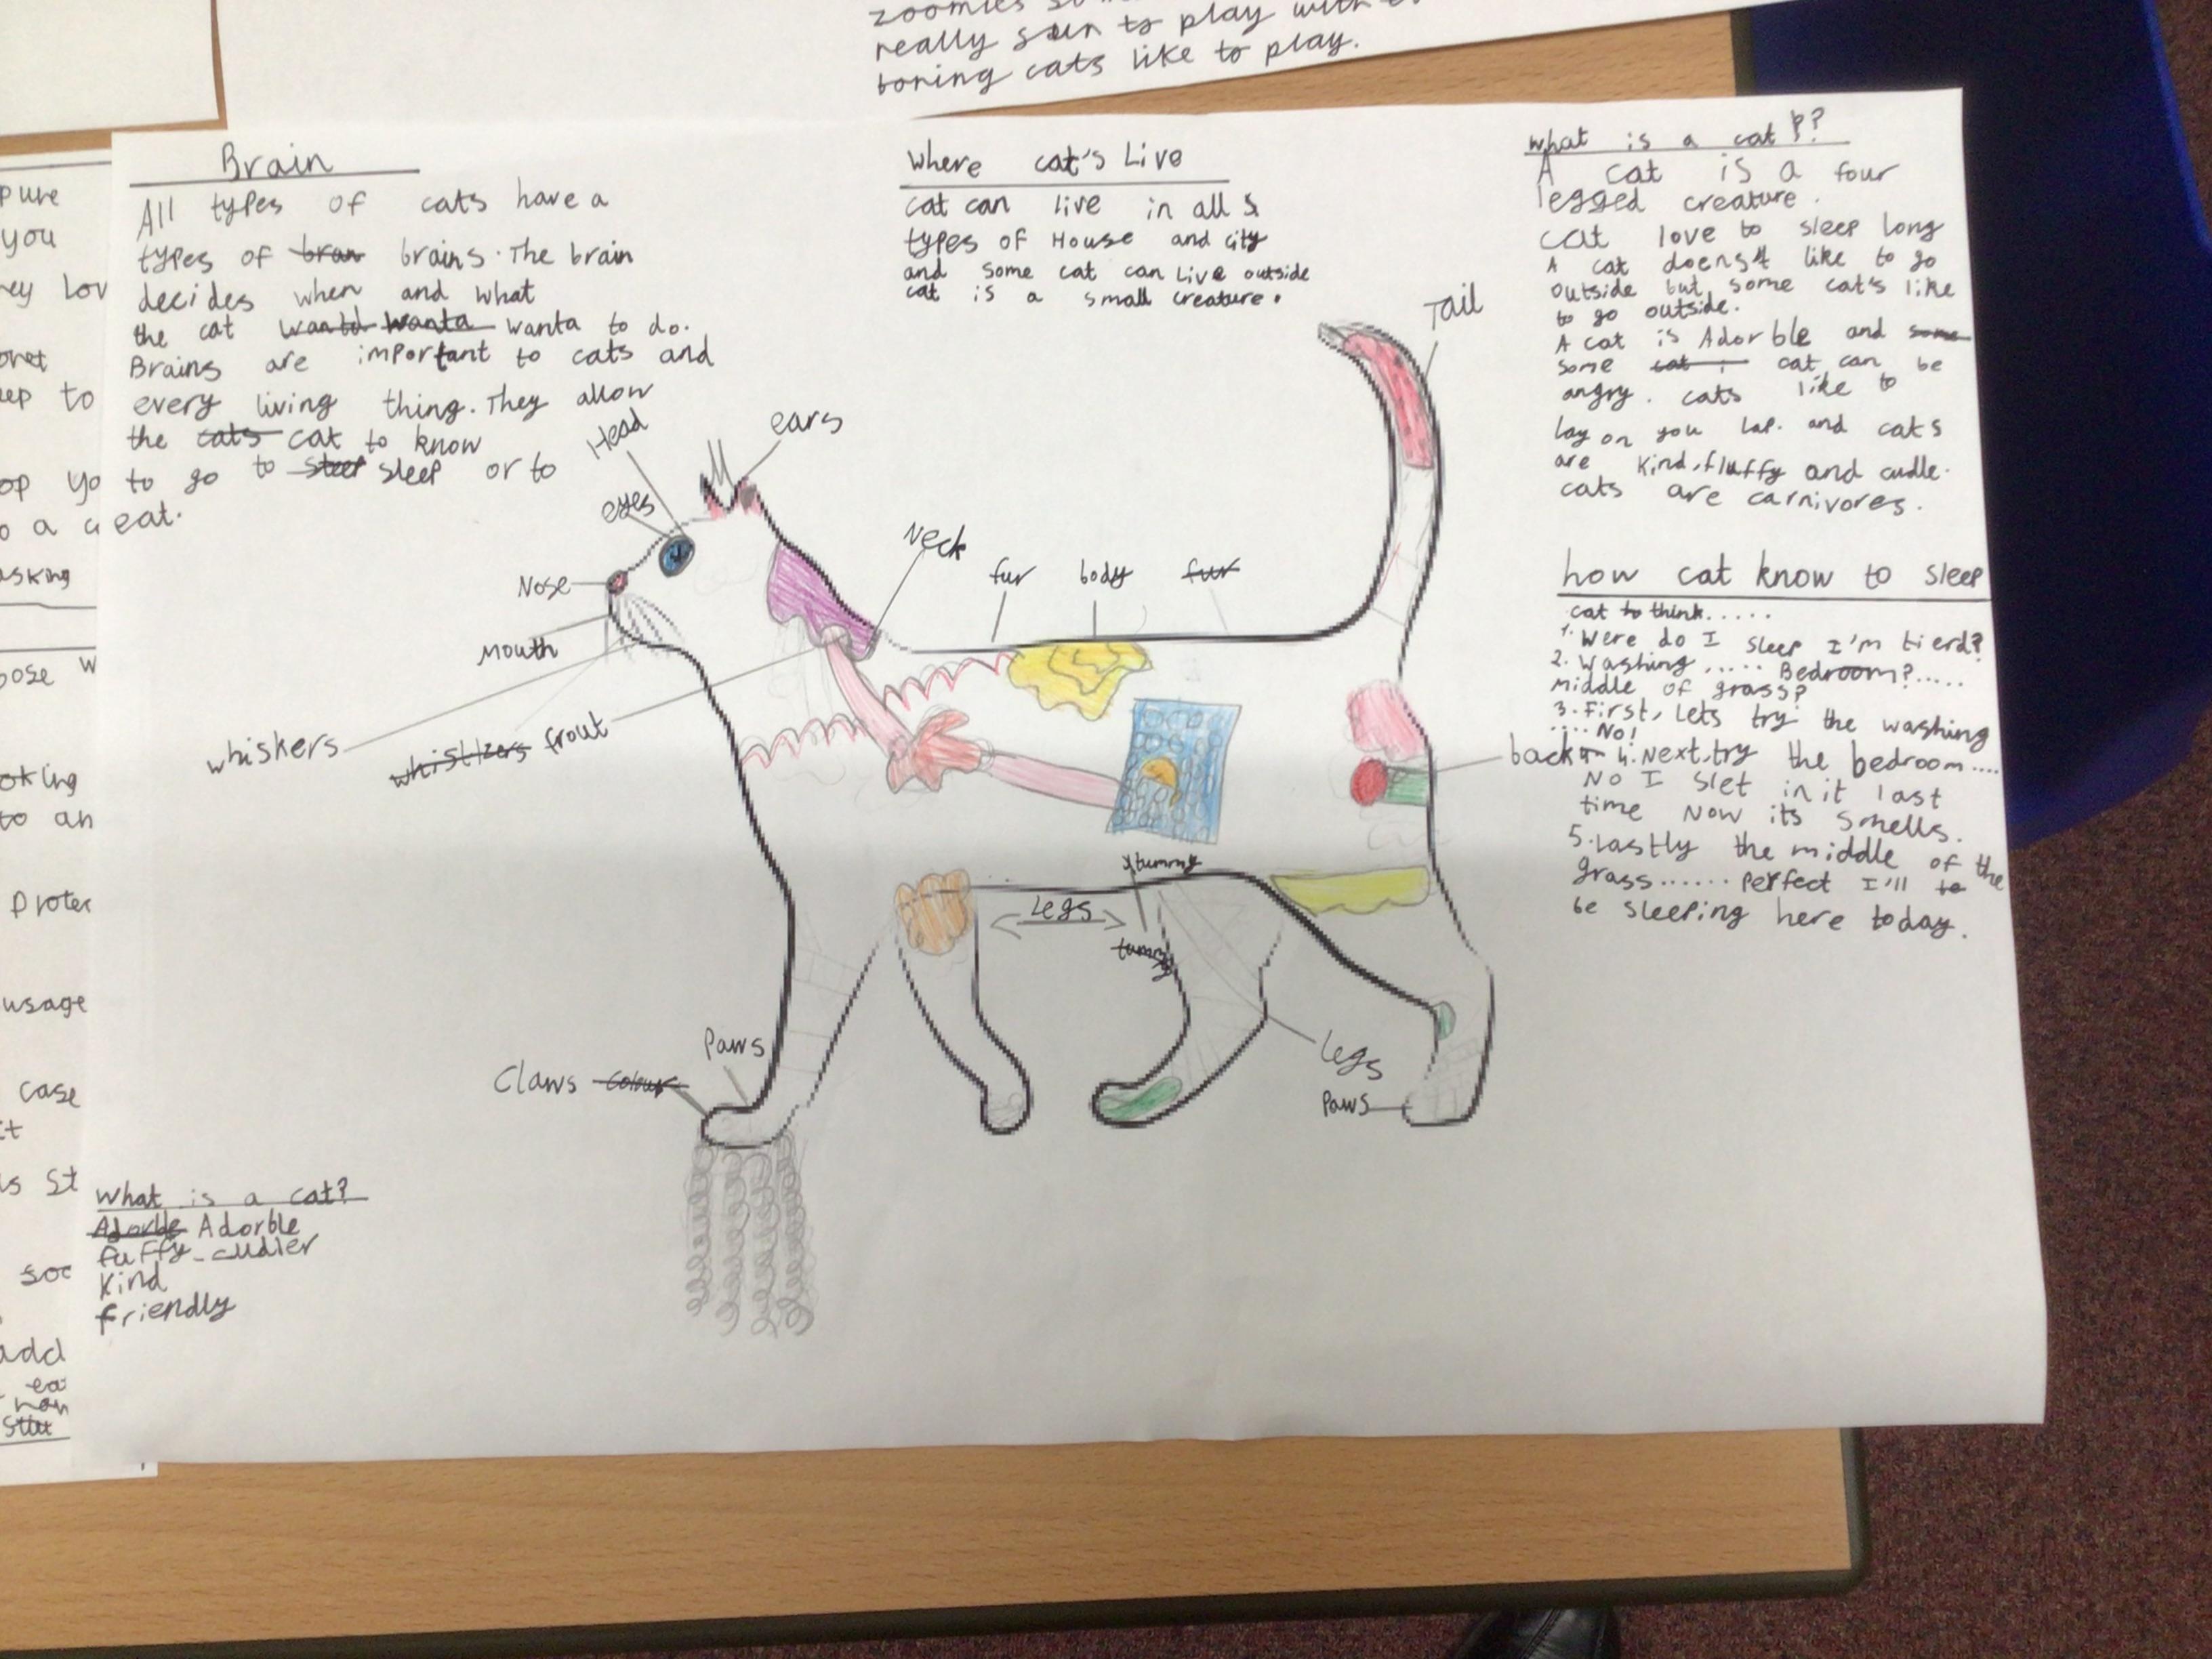 zoomies
really sun to play with
boring cats like to play.
pure
you
ey lov
ep to
op yo
o a c
asking
pose w
oking
to an
protec
usage
case
it
is st
soc
add
ea
Brain
All types of cats have a
types of bran brains. The brain
decides when and what
the cat wantd wanta wanta to do.
Brains are important to cats and
every living thing. They allow
the cats cat to know
to go to sleep sleep or to
eat.
Where cat's Live
cat can live in all s
types of House and city
and some cat can Live outside
cat is a small creature.
what is a cat??
A cat is a four
legged creature.
cat love to sleep long
A cat doenst like to go
outside but some cat's like
to go outside.
A cat is Adorble and some
some cat i cat can be
angry. cats like to
lay on you lap. and cats
are kind, fluffy and cudle.
cats are carnivores.
how cat know to sleep
cat to think.....
1. Were do I sleep I'm tierd?
2. Washing..... Bedroom?.....
middle of grass?
3. First, Lets try the washing
.... No!
4. Next, try the bedroom....
No I slet in it last
time Now its smells.
5. Lastly the middle of the
grass...... perfect I'll to
be sleeping here today.
Tail
ears
Head
eyes
Nose
Mouth
whiskers
frout
Neck
fur
body
fur
back
tummy
Legs
tummy
Legs
Paws
Paws
Claws colour
What is a cat?
Adorble Adorble
fuffy - cudler
Kind
friendly